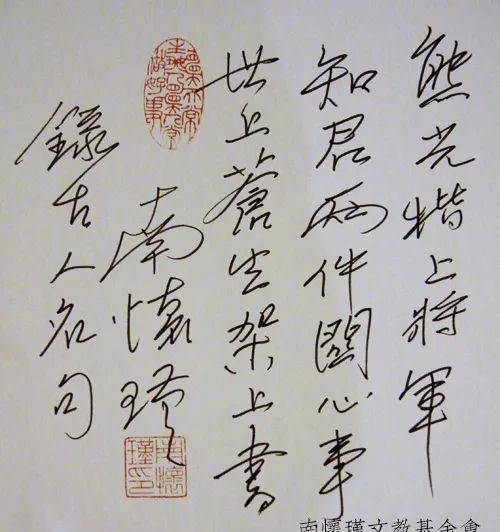 熊光楷上將軍
知君兩件關心事
世上蒼生架上書
南懷瑾
錄古人名句
南懷瑾印
南懷瑾文教基金會